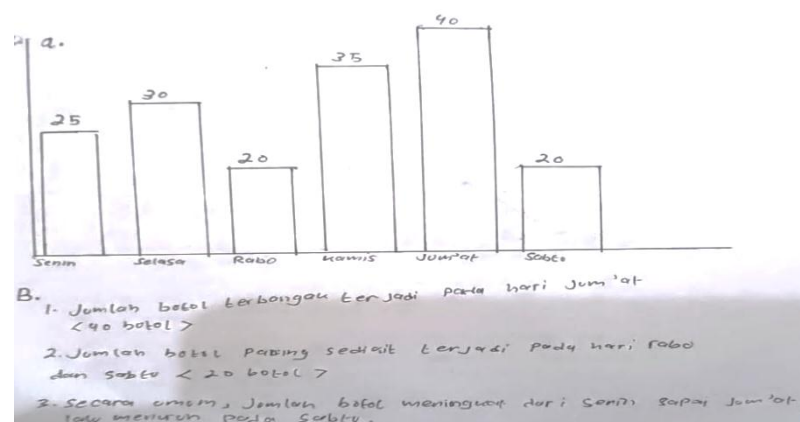 a.
40
35
30
25
20
20
Senin Selasa Rabo Kamis Jum'at Sabto
B.
1. Jumlah botol terbongau terjadi pada hari Jum'at
< 40 botol >
2. Jumlah botol paling sedikit terjadi pada hari rabo
dan sabto < 20 botol >
3. secara umum, Jumlah botol meningkat dari senin sapai Jum'at
lalu menurun pada Sabtu.